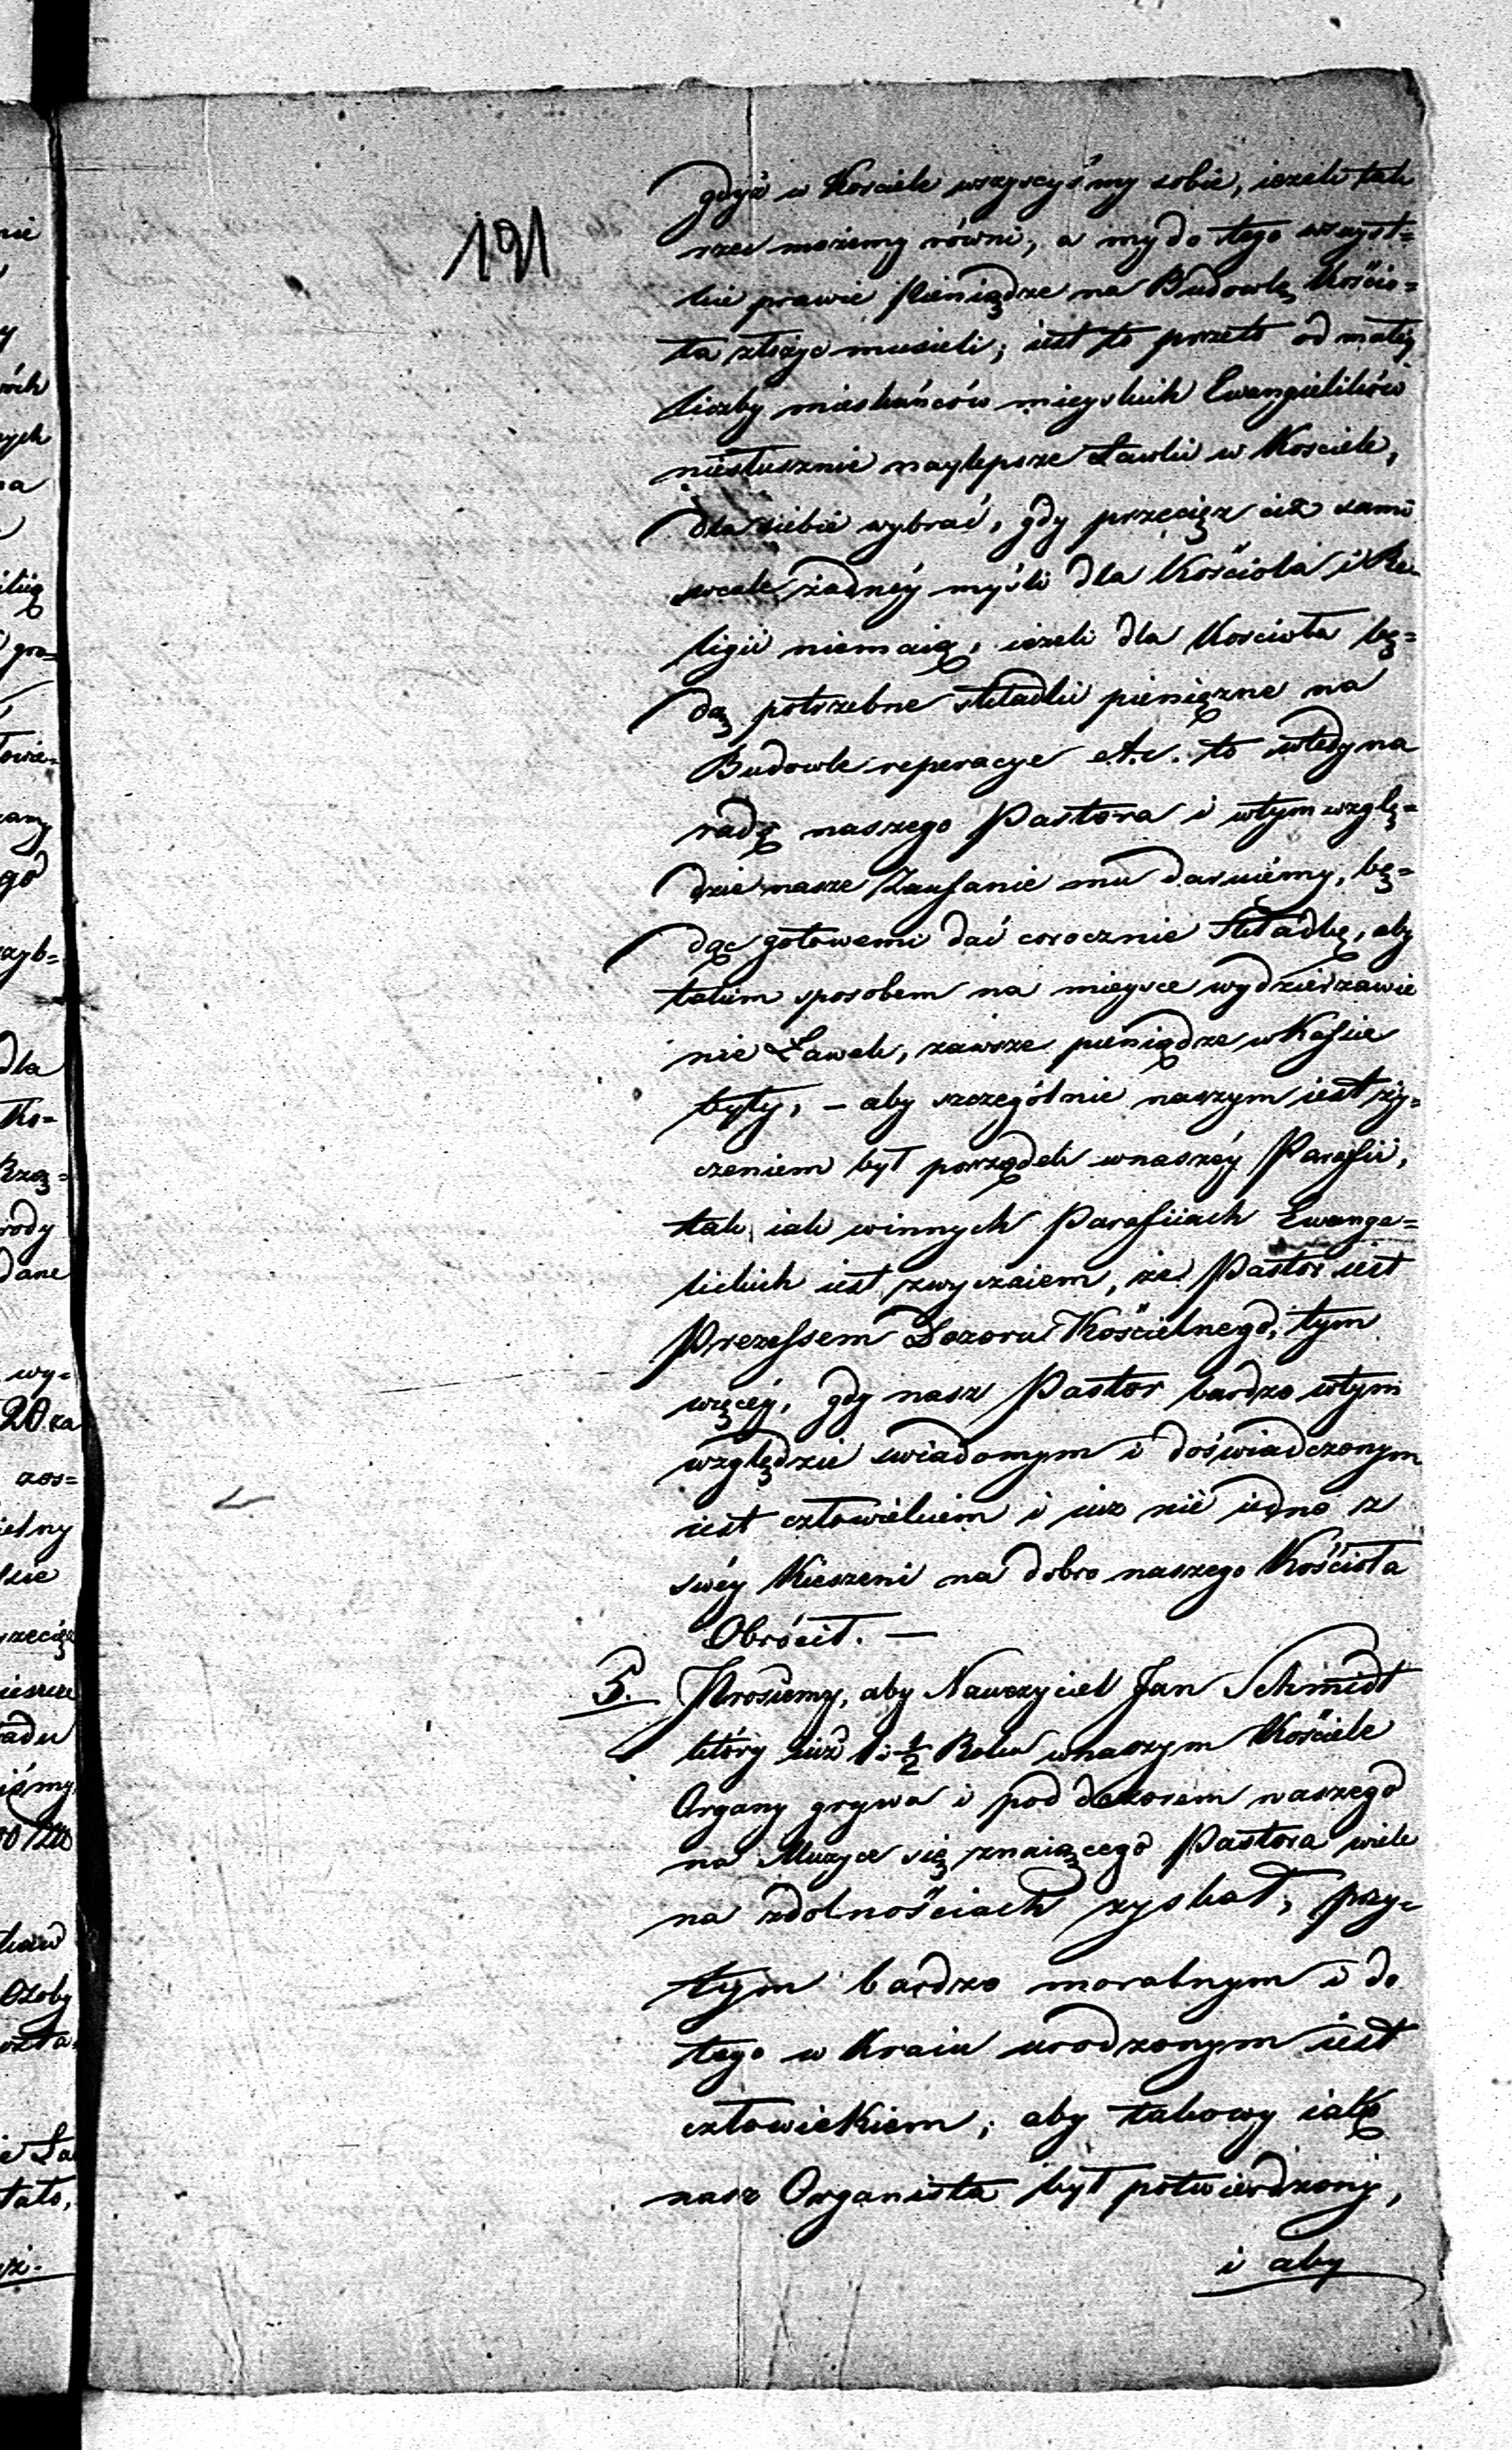 191
gdyż w Kosciele wszyscyśmy sobie, ieżeli tak
rzec możemy równi, a my do tego wszyst=
kie prawie Pieniądze na Budowlę Kościo=
ła złożyc musieli; iest to przeto od małey
Liczby mieskańców mieyskich Ewangielików
niesłusznie naylepsze Ławki w Kosciele,
dla siebie wybrać, gdy przecięz ciż sami
wcale żadnéy myśli dla Kościoła i Re-
ligii niemaią, ieżeli dla Kościoła bę=
dą potrzebne składki pieniężne na
Budowle reperacye etc. to wtedy na
radę naszego Pastora i wtym wzglę=
dzie nasze Zaufanie mu daruiémy, bę=
dąc gotowemi dać corocznie Składkę, aby
takim sposobem na mieysce wydzierżawie
nie Ławek, zawsze pieniądze w Kassie
były, – aby szczególnie naszym iest ży=
czeniem był porządek wnaszéy Parafii,
tak iak winnych Parafiiach Ewange=
lickich iest zwyczaiem, że Pastor iest
Prezessem Dozoru Kościelnego, tym
więcéy, gdy nasz Pastor bardzo wtym
względzie swiadomym i doświadczonym
iest człowiekiem i iuz nie iedno z
swéy Kieszeni na dobro naszego Kościoła
Obrócił. —
5. Prosiemy, aby Nauczyciel Jan Schmidt
który iuż 1 i ½ Roku wnaszym Kościele
Organy grywa i pod dozorem naszego
na Muzyce się znaiącego Pastora wiele
na zdolnościach zyskał, przy=
tym bardzo moralnym i do
tego w Kraiu urodzonym iest
człowiekiem; aby takowy iako
nasz Organista był potwierdzony,
i aby